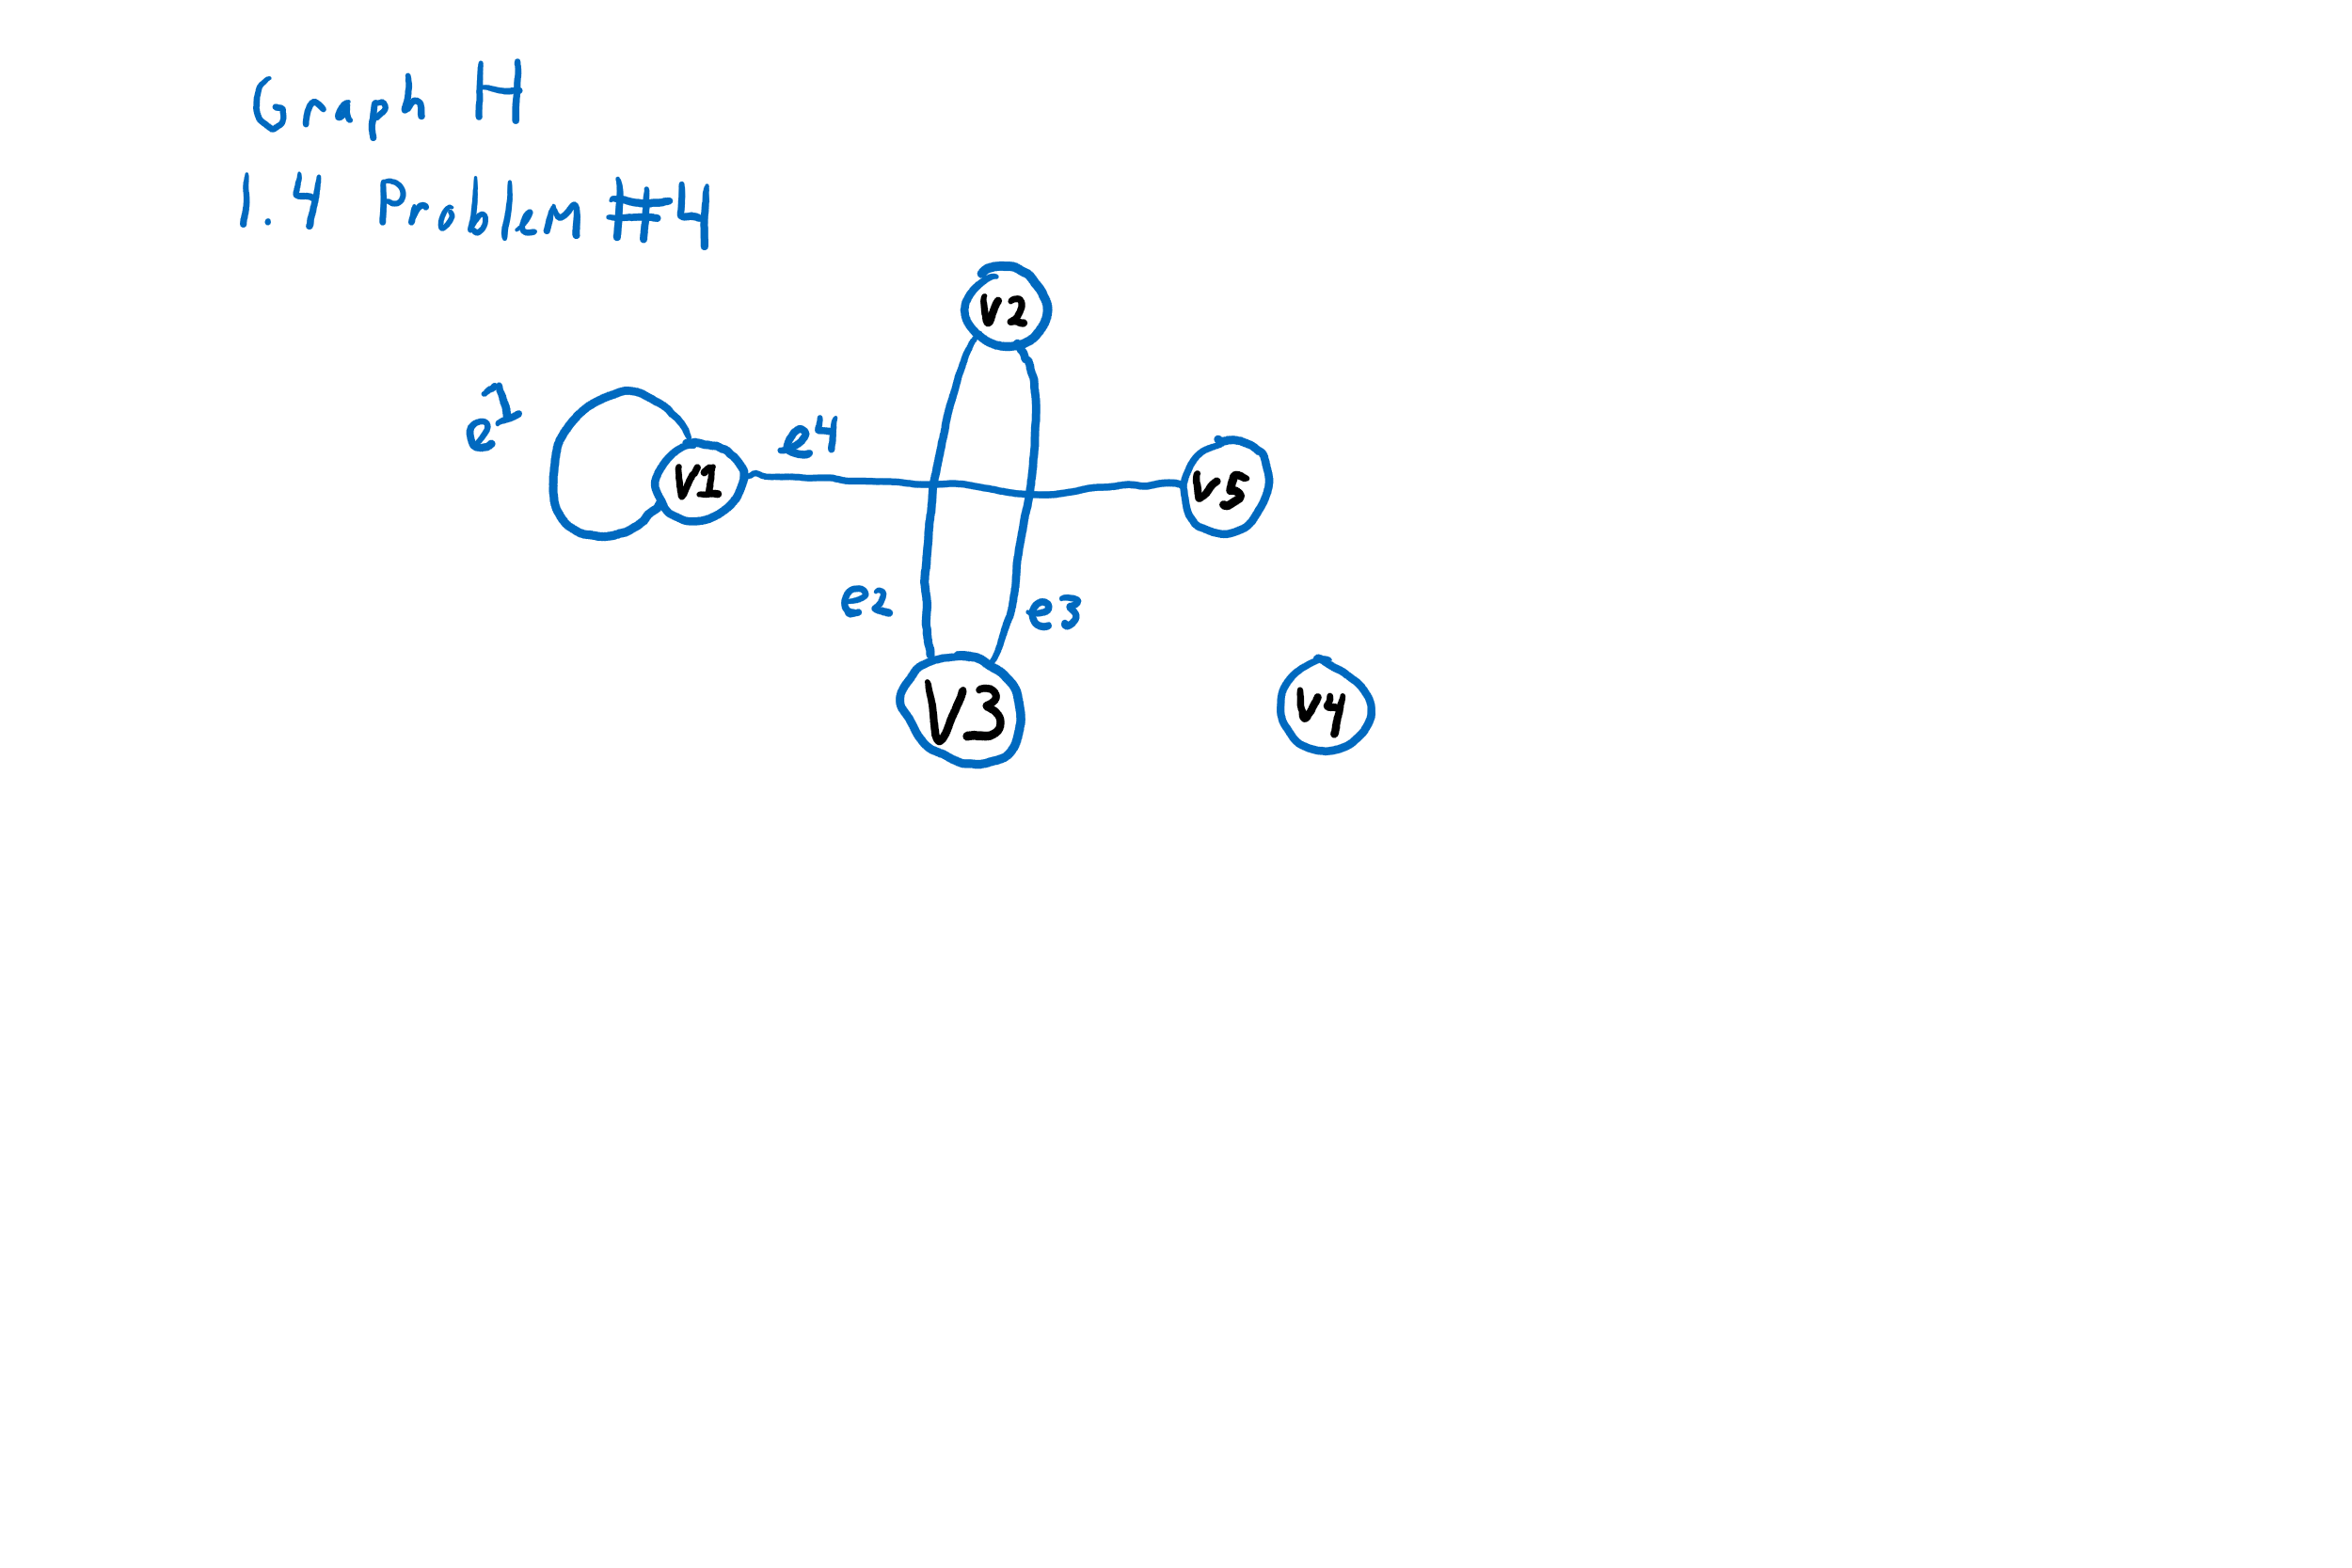 Graph H
1.4 Problem #4
V2
e1
e4
V1
V5
e2
e3
V3
V4